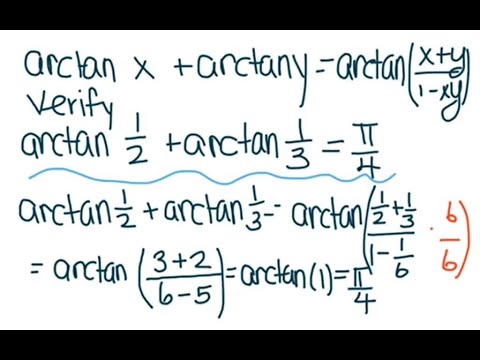 arctan x + arctan y = arctan((x+y)/(1-xy))
verify
arctan 1/2 + arctan 1/3 = π/4
arctan 1/2 + arctan 1/3 = arctan((1/2 + 1/3)/(1 - 1/6) · 6/6)
= arctan((3+2)/(6-5)) = arctan(1) = π/4